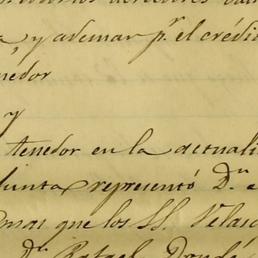 a, y ademas p.r el crédi
nedor
y
tenedor en la actuali
unta representó D.n
mas que los SS. Velasc
D.n Rafael